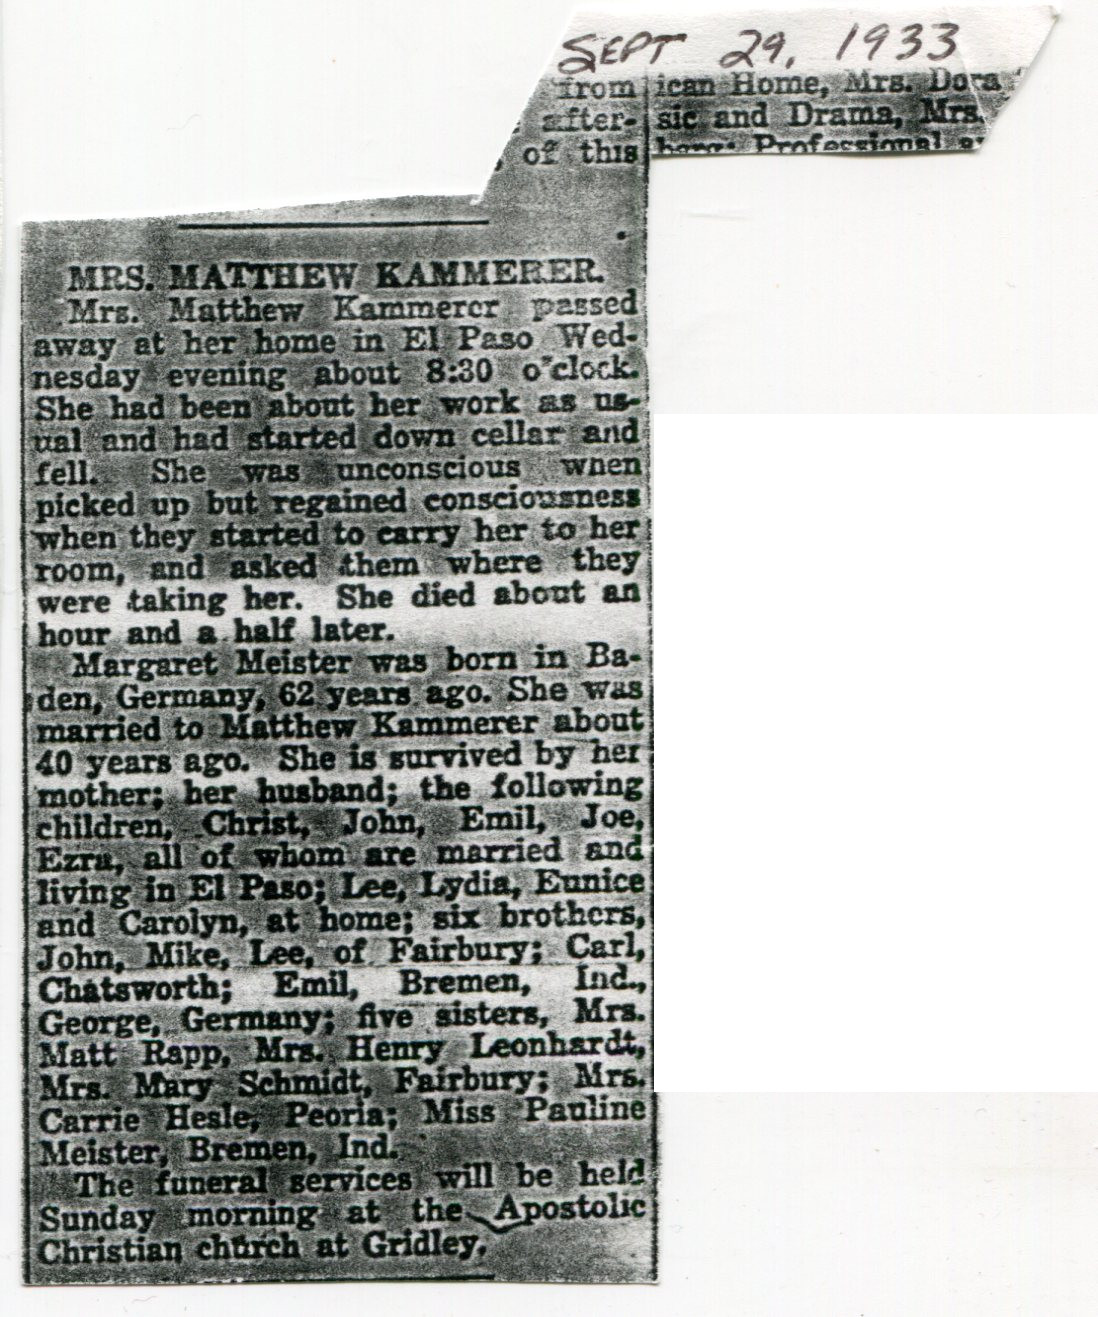 SEPT 29, 1933
from ican Home, Mrs. Dora
after- sic and Drama, Mrs.
of this berg; Professional
MRS. MATTHEW KAMMERER.
Mrs. Matthew Kammerer passed
away at her home in El Paso Wed-
nesday evening about 8:30 o'clock.
She had been about her work as us-
ual and had started down cellar and
fell. She was unconscious when
picked up but regained consciousness
when they started to carry her to her
room, and asked them where they
were taking her. She died about an
hour and a half later.
Margaret Meister was born in Ba-
den, Germany, 62 years ago. She was
married to Matthew Kammerer about
40 years ago. She is survived by her
mother; her husband; the following
children, Christ, John, Emil, Joe,
Ezra, all of whom are married and
living in El Paso; Lee, Lydia, Eunice
and Carolyn, at home; six brothers,
John, Mike, Lee, of Fairbury; Carl,
Chatsworth; Emil, Bremen, Ind.,
George, Germany; five sisters, Mrs.
Matt Rapp, Mrs. Henry Leonhardt,
Mrs. Mary Schmidt, Fairbury; Mrs.
Carrie Hesle, Peoria; Miss Pauline
Meister, Bremen, Ind.
The funeral services will be held
Sunday morning at the Apostolic
Christian church at Gridley.